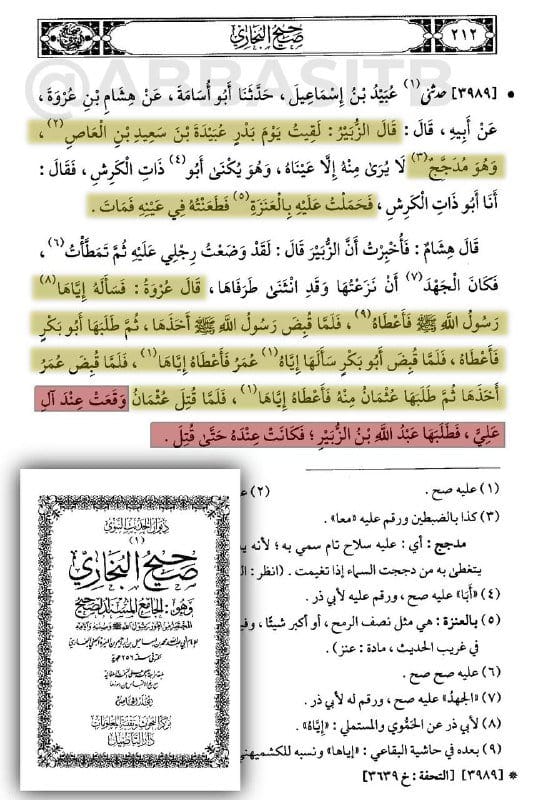 ٢١٢
صحيح البخاري
@ABBASITB
• [٣٩٨٩] حدثني (١) عُبَيْدُ بْنُ إِسْمَاعِيلَ ، حَدَّثَنَا أَبُو أُسَامَةَ ، عَنْ هِشَامِ بْنِ عُرْوَةَ ،
عَنْ أَبِيهِ ، قَالَ : قَالَ الزُّبَيْرُ : لَقِيتُ يَوْمَ بَدْرٍ عُبَيْدَةَ بْنَ سَعِيدِ بْنِ الْعَاصِ (٢) ،
وَهُوَ مُدَجَّجٌ (٣) لَا يُرَىٰ مِنْهُ إِلَّا عَيْنَاهُ ، وَهُوَ يُكْنَىٰ أَبُو (٤) ذَاتِ الْكَرِشِ ، فَقَالَ :
أَنَا أَبُو ذَاتِ الْكَرِشِ ، فَحَمَلْتُ عَلَيْهِ بِالْعَنَزَةِ (٥) فَطَعَنْتُهُ فِي عَيْنِهِ فَمَاتَ .
قَالَ هِشَامٌ : فَأُخْبِرْتُ أَنَّ الزُّبَيْرَ قَالَ : لَقَدْ وَضَعْتُ رِجْلِي عَلَيْهِ ثُمَّ تَمَطَّأْتُ (٦) ،
فَكَانَ الْجَهْدَ (٧) أَنْ نَزَعْتُهَا وَقَدِ انْثَنَىٰ طَرَفَاهَا ، قَالَ عُرْوَةُ : فَسَأَلَهُ إِيَّاهَا (٨)
رَسُولُ اللَّهِ ﷺ فَأَعْطَاهُ (٩) ، فَلَمَّا قُبِضَ رَسُولُ اللَّهِ ﷺ أَخَذَهَا ، ثُمَّ طَلَبَهَا أَبُو بَكْرٍ
فَأَعْطَاهُ ، فَلَمَّا قُبِضَ أَبُو بَكْرٍ سَأَلَهَا إِيَّاهُ (١) عُمَرُ فَأَعْطَاهُ إِيَّاهَا (١) ، فَلَمَّا قُبِضَ عُمَرُ
أَخَذَهَا ثُمَّ طَلَبَهَا عُثْمَانُ مِنْهُ فَأَعْطَاهُ إِيَّاهَا (١) ، فَلَمَّا قُتِلَ عُثْمَانُ وَقَعَتْ عِنْدَ آلِ
عَلِيٍّ ، فَطَلَبَهَا عَبْدُ اللَّهِ بْنُ الزُّبَيْرِ ؛ فَكَانَتْ عِنْدَهُ حَتَّىٰ قُتِلَ .
(١) عليه صح .
(٢)
(٣) كذا بالضبطين ورقم عليه «معا» .
مدجج : أي : عليه سلاح تام سمي به ؛ لأنه
يتغطى به من دججت السماء إذا تغيمت . (انظر :
(٤) «أَبَا» عليه صح ، ورقم عليه لأبي ذر .
(٥) بالعنزة : هي مثل نصف الرمح ، أو أكبر شيئًا ،
في غريب الحديث ، مادة : عنز) .
(٦) عليه صح صح .
(٧) «الجهدُ» عليه صح ، ورقم له لأبي ذر .
(٨) لأبي ذر عن الحَمُّوي والمستملي : «إِيَّاهُ» .
(٩) بعده في حاشية البقاعي : «إياها» ونسبه للكشميهني
* [٣٩٨٩] [التحفة : خ ٣٦٣٩]
ديوان الحديث النبوي
(١)
صحيح البخاري
وهو : الجامع المسند الصحيح
دار التأصيل